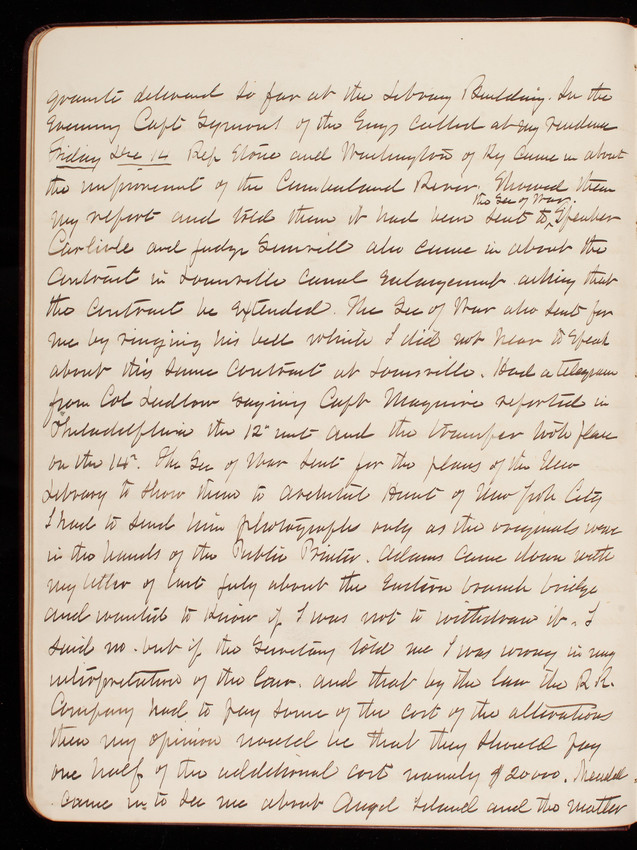 granite delivered so far at the Library Building. In the
Evening Capt Symons of the Engrs called at my residence
Friday Dec 14 Rep Stone and Washington of Ky came in about
the improvement of the Cumberland River. Showed them
my report and told them it had been sent to the Sec of War. Speaker
Carlisle and Judge also came in about the
Contract in Louisville Canal Enlargement asking that
the Contract be Extended. The Sec of War also sent for
me by ringing his bell which I did not hear to speak
about this same Contract at Louisville. Had a telegram
from Col Ludlow saying Capt Maguire reported in
Philadelphia the 12" inst and the transfer took place
on the 14". The Sec of War sent for the plans of the New
Library to show them to Architect Hunt of New York City
I had to send him photographs only as the originals were
in the hands of the Public Printer. Adams came down with
my letter of last July about the Eastern branch bridge
and wanted to know if I was not to withdraw it. I
said no. but if the Secretary told me I was wrong in my
interpretation of the law. and that by the law the R.R.
Company had to pay some of the cost of the alterations
then my opinion would be that they should pay
one half of the additional cost namely $20000. Mendell
came in to see me about Angel Island and the matter